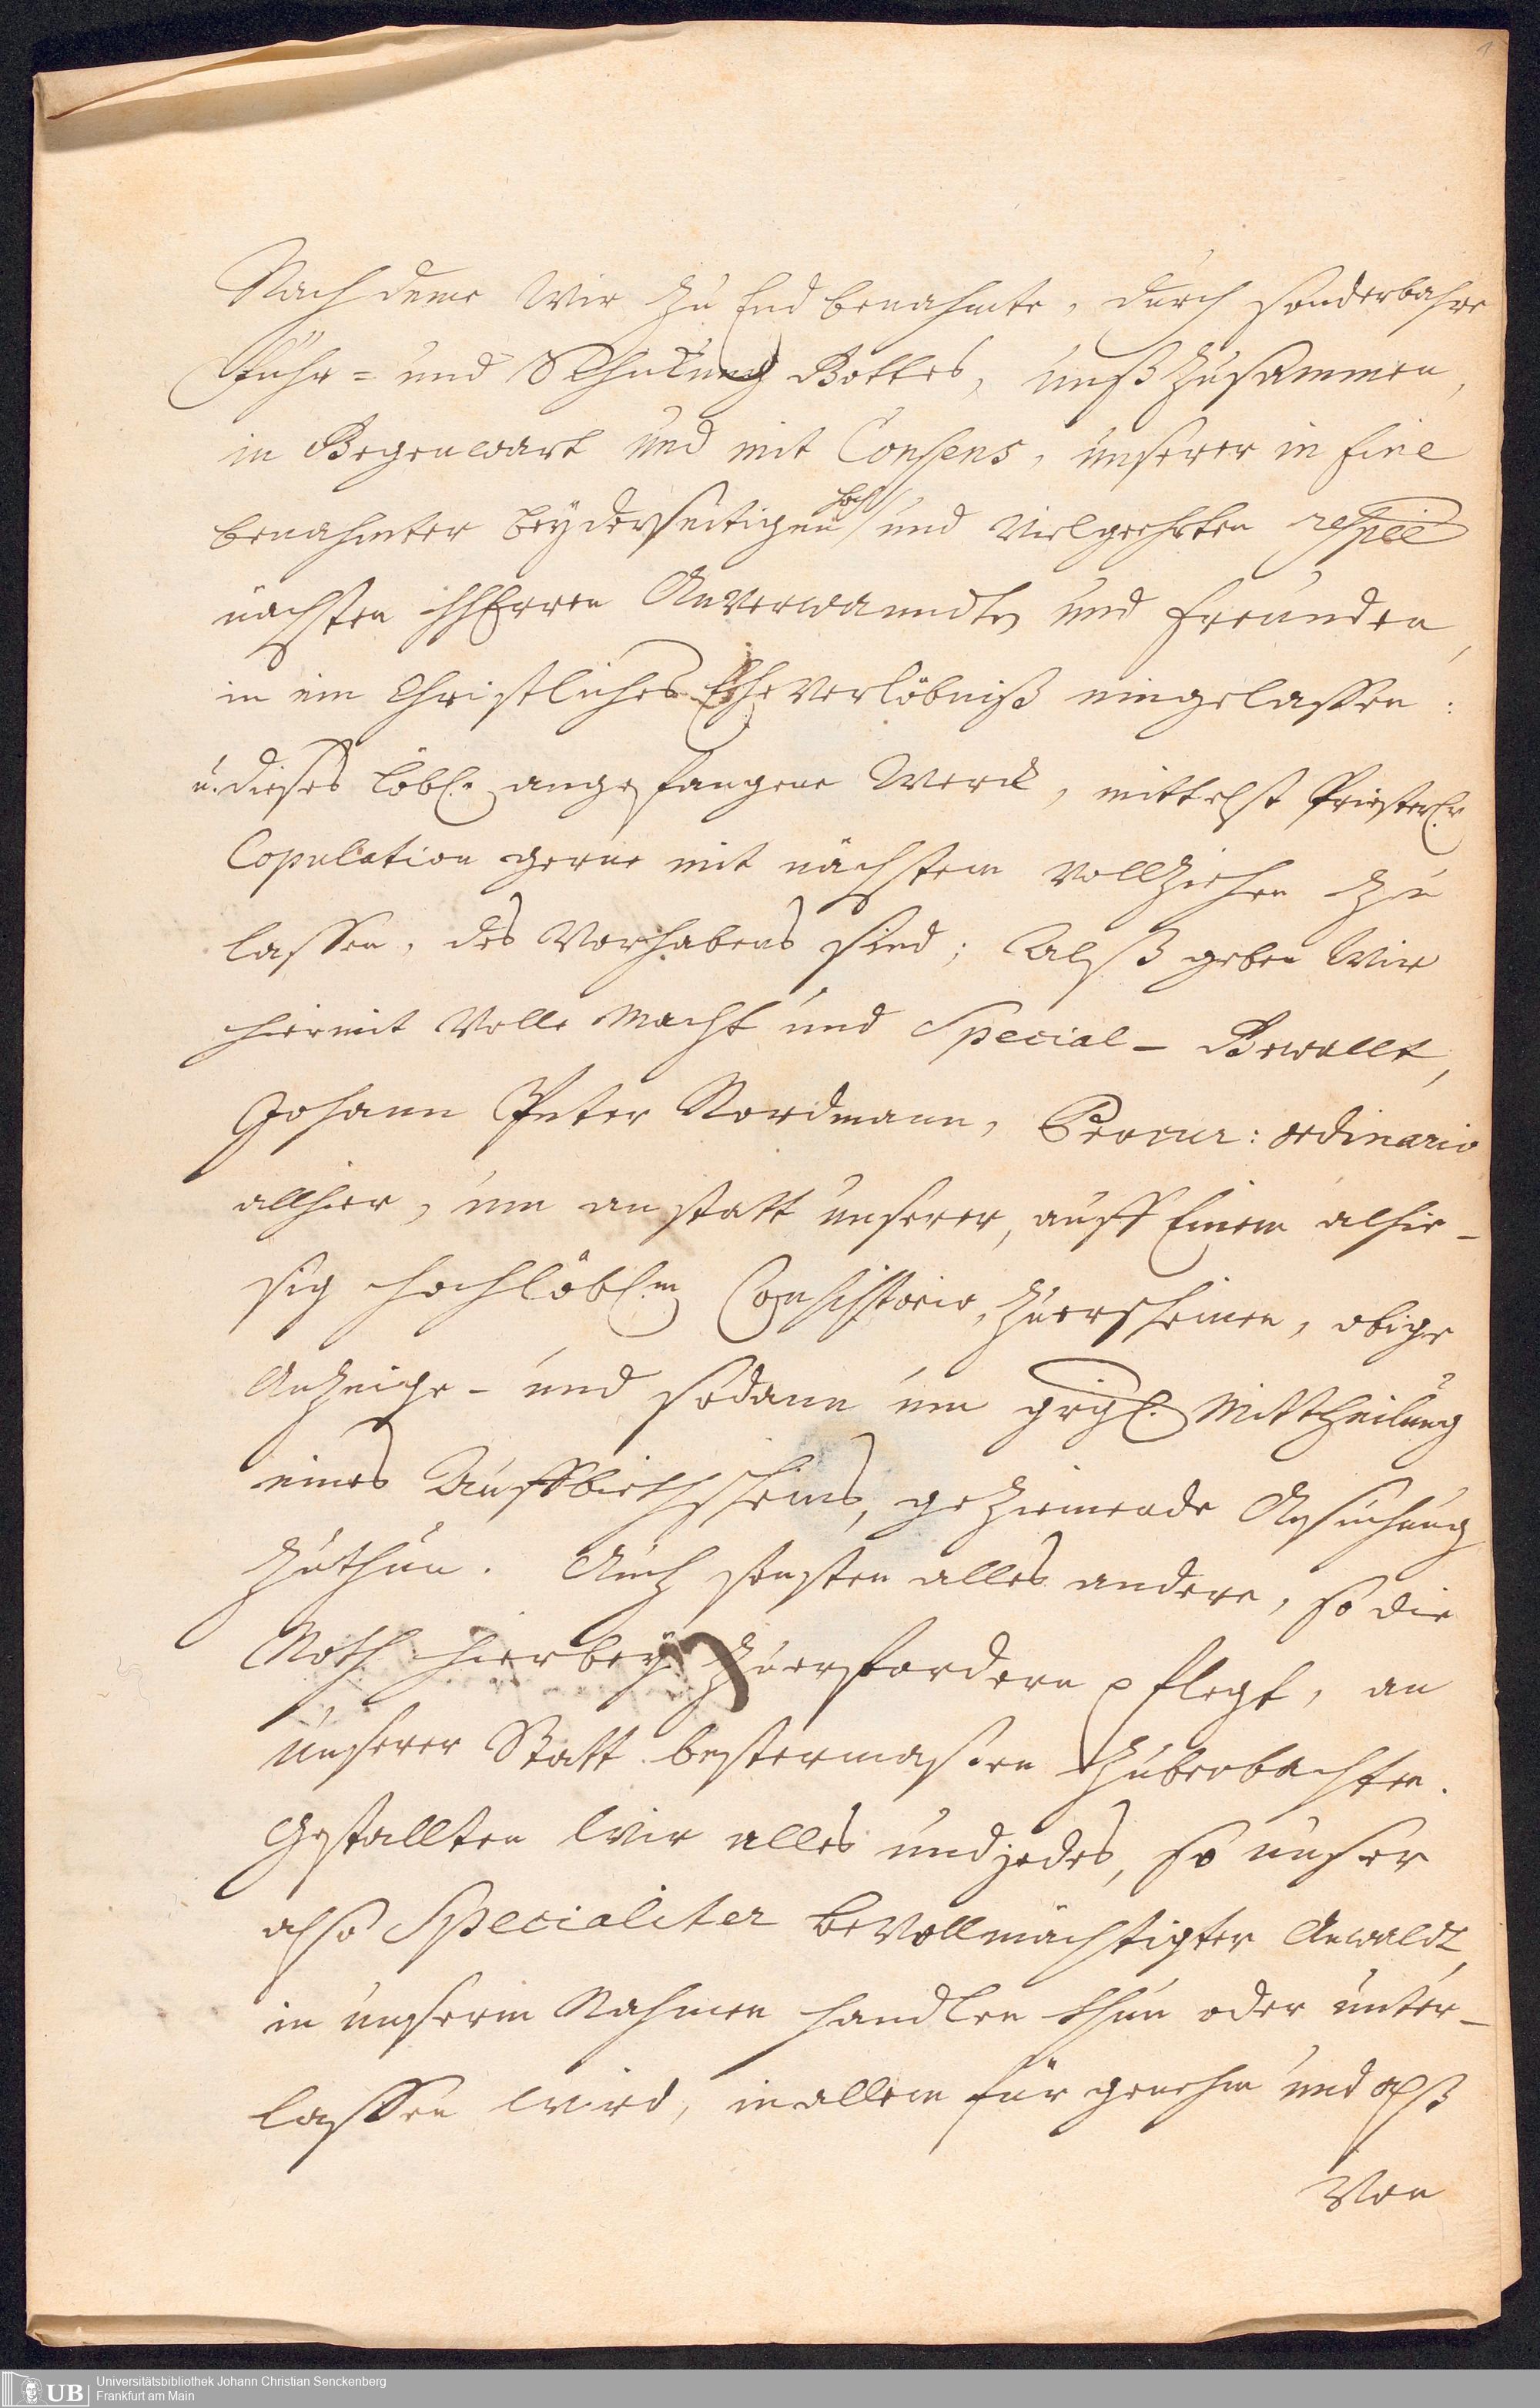 1
Nach deme Wir zu End benahmte, durch sonderbahre
Führ= und Schickung Gottes, unß zusammen,
in Gegenwart und mit Consens, unserer in fine
benahmter beyderseitigen hoch und Vielgeehrten respée
nächsten HHErren Anverwanndten und Freunden,
in ein Christliches Ehe Verlöbniß eingelassen:
u. dieses löbl. angefangene Werck, mittelst Priesterl.r
Copulation gerne mit nächstem vollziehen zu
lassen, des Vorhabens sind; Alß geben Wir
hiermit Volle Macht und Special- Gewallt,
Johann Peter Nordmann, Procur: ordinario
allhier, um anstatt unserer, auff Einem alhie-
sig hochlöbl.m Consistorio, zuerscheinen, obige
Anzeige- und sodann um grgl. Mittheilung
eines Auffbiethscheins, geziemende Ansuchung
zuthun. Auch sonsten alles andere, so die
Noth hierbey zuerfordern pflegt, an
unserer Statt bestermaßen zubeobachten.
Gestallten Wir alles und jedes, so unser
also Specialiter beVollmächtigter Anwaldt,
in unserm Nahmen handlen thun oder unter-
lassen wird, in allem für genehm und alß
Von
UB
Universitätsbibliothek Johann Christian Senckenberg
Frankfurt am Main